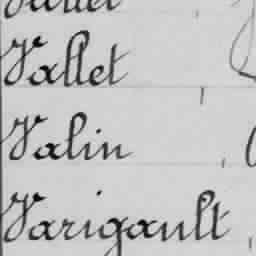 Vallet
Valin
Varigault